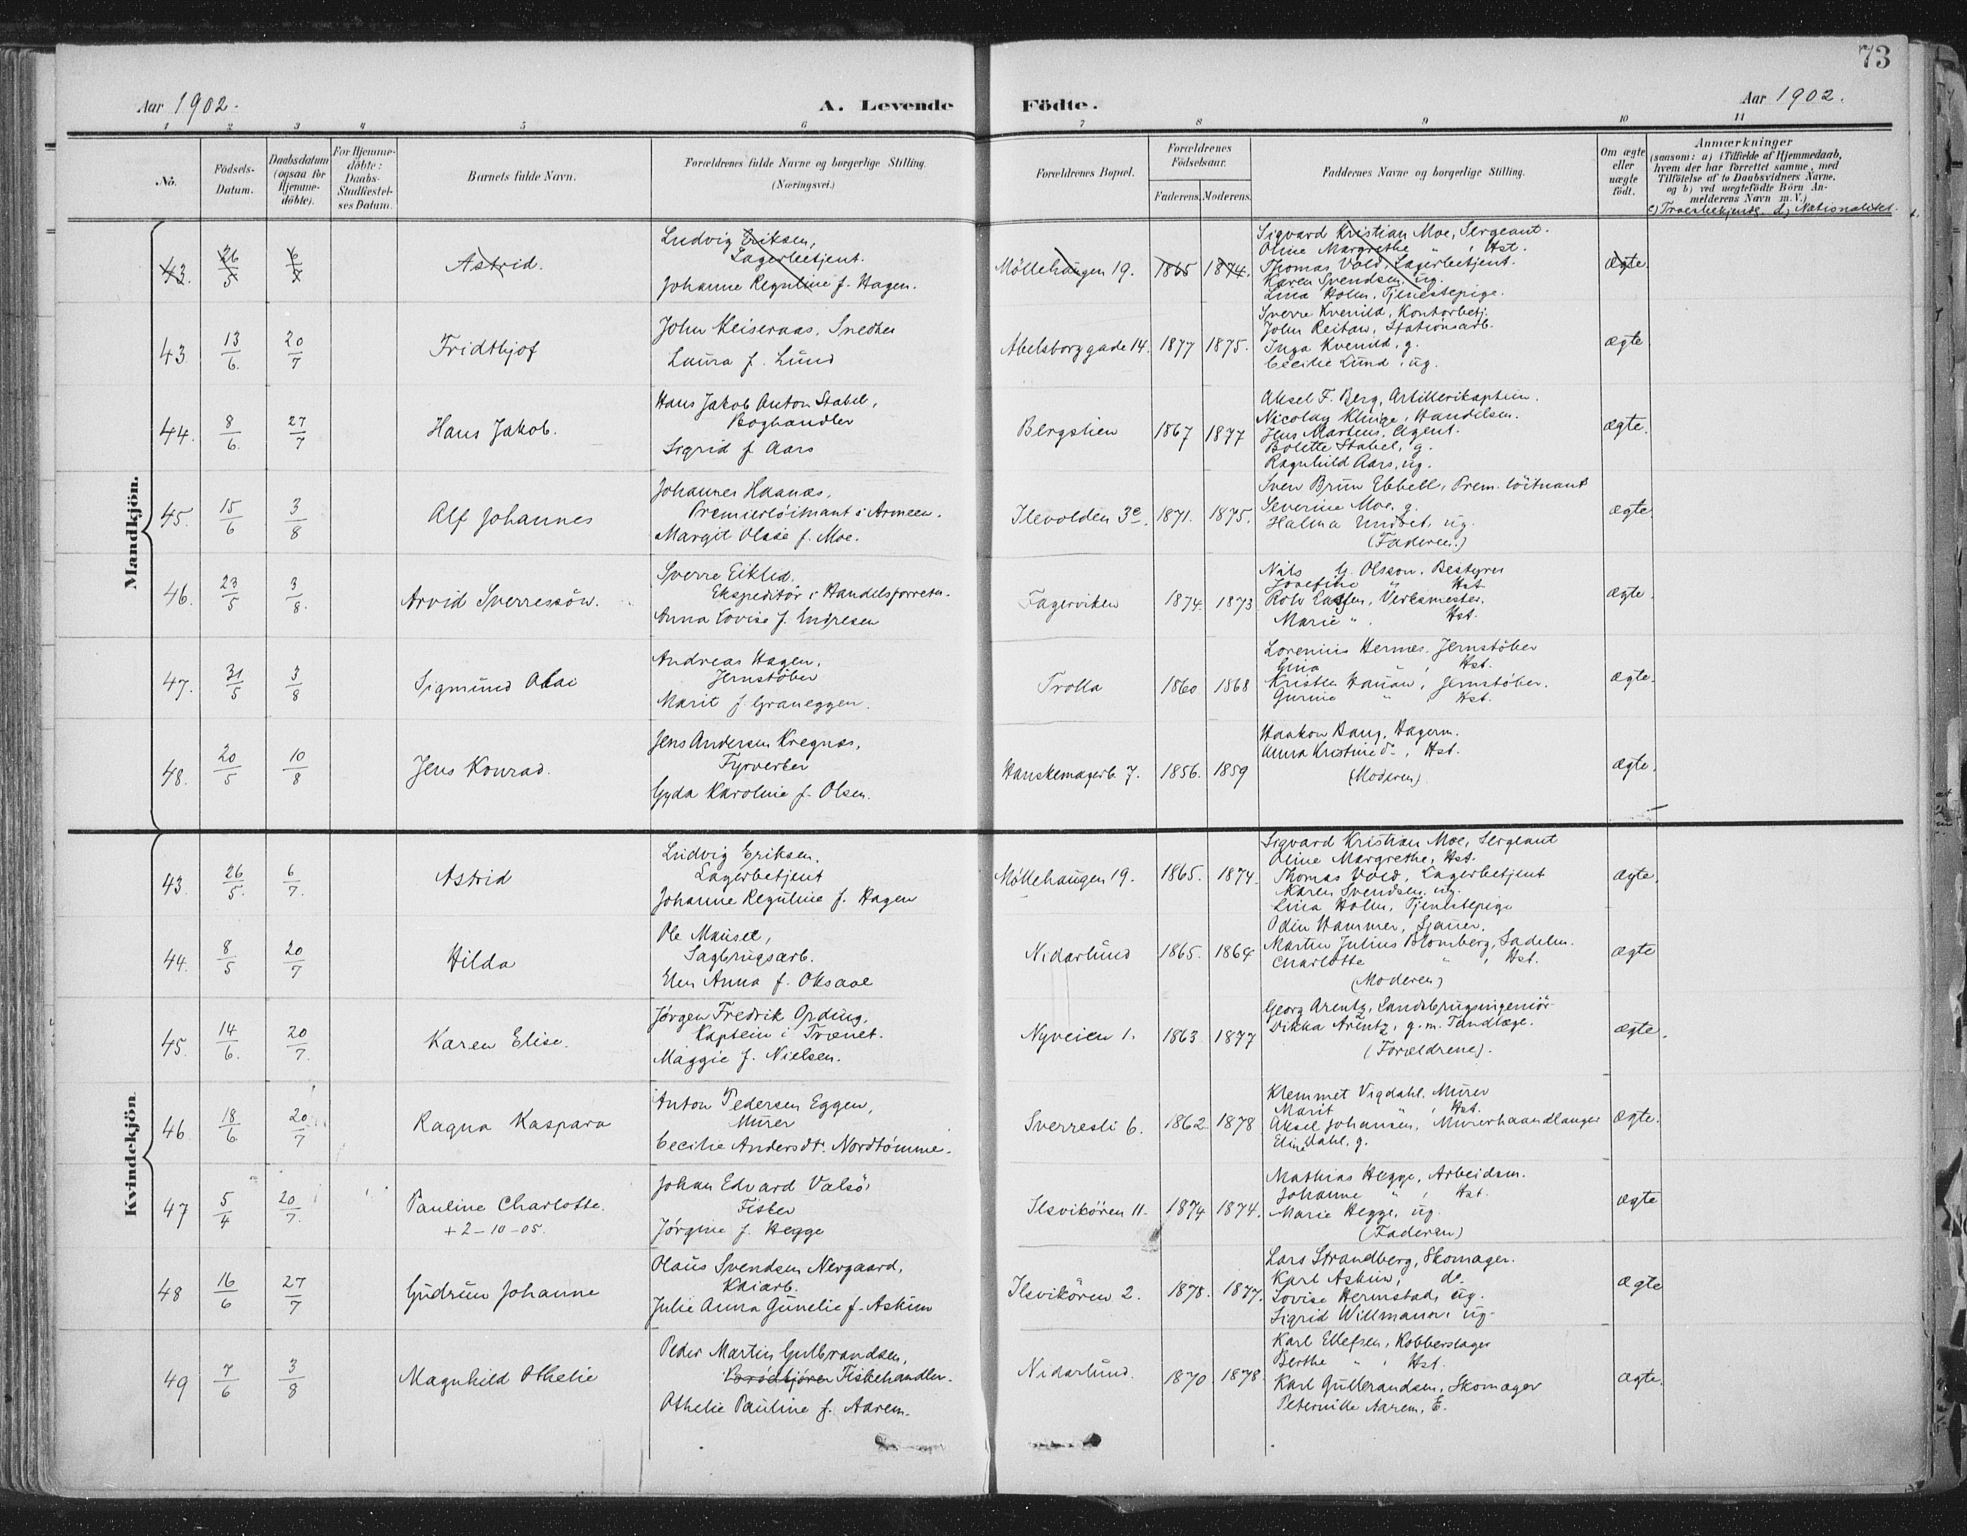 73
Aar 1902. A. Levende Födte. Aar 1902.
1 2 3 4 5 6 7 8 9 10 11
No.
Födsels-Datum.
Daabsdatum (ogsaa for Hjemme-döbte).
For Hjemme-döbte: Daabs-Stadfæstel-ses Datum.
Barnets fulde Navn.
Forældrenes fulde Navne og borgerlige Stilling. (Næringsvei.)
Forældrenes Bopæl.
Forældrenes Födselsaar.
Faderens. Moderens.
Faddernes Navne og borgerlige Stilling.
Om ægte eller uægte födt.
Anmærkninger
(saasom: a) i Tilfælde af Hjemmedaab,
hvem der har forrettet samme, med
Tilföielse af to Daabsvidners Navne,
og b) ved uægtefödte Börn An-
melderens Navn m. V.)
c) Troesbekjende. d) Nationalitet.
Mandkjön.
43. 26/5 6/7 Astrid.
Ludvig Eriksen,
Lagerbetjent.
Johanne Reguline f. Hagen.
Møllehaugen 19. 1865 1874.
Sigvard Kristian Moe, Sergeant.
Oline Margrethe " , Hst.
Thomas Vold, Lagerbetjent.
Karen Svendsen, ug.
Lina Holm, Tjenestepige.
ægte.
43 13/6. 20/7 Fridthjof
John Keiseraas, Snedker
Laura f. Lund
Abelsborggade 14. 1877 1875.
Sverre Kvenild, Kontorbetj.
John Reitan, Stationsarb.
Inga Kvenild, g.
Cecilie Lund, ug.
ægte
44. 8/6. 27/7 Hans Jakob.
Hans Jakob Anton Stabel,
Boghandler
Sigrid f. Aars
Bergstien 1867 1877
Aksel F. Berg, Artillerikaptein.
Nicolay Klinge, Handelsm.
Jens Martens, Agent.
Bolette Stabel, g.
Ragnhild Aars, ug.
ægte.
45. 15/6 3/8 Alf Johannes
Johannes Haanæs,
Premierlöitnant i Armeen.
Margit Olise f. Moe.
Ilevolden 3e. 1871. 1875.
Sven Brun Ebbell, Prem. löitnant
Severine Moe, g.
Halma Undset, ug.
(Faderen.)
ægte
46. 23/5 3/8. Arvid Sverressön.
Sverre Eiklid.
Ekspeditör i Handelsforretn.
Anna Lovise f. Indresen
Fagerviken 1874. 1873
Nils G. Olsson, Bestyrer
Josefine " Hst.
Rolv Lassen, Verksmester.
Marie " . Hst.
ægte.
47. 31/5 3/8 Sigmund Olai
Andreas Hagen,
Jernstöber
Marit f. Graneggen.
Trolla 1860 1868
Lorenius Hermes, Jernstöber
Gina " , Hst.
Kristen Hauan, Jernstöber.
Gurine " Hst.
ægte.
48. 20/5 10/8 Jens Konrad.
Jens Andersen Kregnæs,
Fyrverker
Gyda Karoline f. Olsen.
Hanskemagerb. 7. 1856. 1859
Haakon Haug, Hagem.
Anna Kristine do , Hst.
(Moderen).
ægte.
Kvindekjön.
43 26/5. 6/7. Astrid
Ludvig Eriksen.
Lagerbetjent
Johanne Reguline f. Hagen
Møllehaugen 19. 1865. 1874.
Sigvard Kristian Moe, Sergeant
Oline Margrethe, Hst.
Thomas Vold, Lagerbetjent
Karen Svendsen, ug.
Lina Holm, Tjenestepige
ægte.
44. 8/5 20/7 Hilda
Ole Mauset,
Sagbrugsarb.
Elen Anna f. Oksaae
Nidarlund 1865. 1864
Odin Hammer, Sjauer.
Martin Julius Blomberg, Sadelm.
Charlotte " , Hst.
(Moderen)
ægte
45. 14/6. 20/7. Karen Elise.
Jørgen Fredrik Opding,
Kaptein i Trænet.
Maggie f. Nielsen.
Nyveien 1. 1863 1877
Georg Arentz, Landsbrugsingeniör
Dikka Arentz, g. m. Tandlæge.
(Forældrene).
ægte.
46 18/6 20/7 Ragna Kaspara
Anton Pedersen Eggen,
Murer
Cecilie Andersdtr. Nordtömme.
Sverresli 6. 1862 1878
Klemmet Vigdahl, Murer
Marit " , Hst.
Aksel Johansen, Murerhaandlanger
Eline Dahl, g.
ægte.
47 5/4 20/7. Pauline Charlotte.
+ 2-10-05.
Johan Edvard Valsö,
Fisker
Jörgine f. Hegge
Ilsvikören 11. 1874 1874.
Mathias Hegge, Arbeidsm.
Johanne " , Hst.
Marie Hegge, ug.
(Faderen)
ægte
48 16/6 27/7 Gudrun Johanne
Olaus Svendsen Nergaard,
Kaiarb.
Julie Anna Gunelie f. Askim
Ilsvikören 2. 1878. 1877.
Lars Strandberg, Skomager.
Karl Askim, do.
Lovise Hermstad, ug.
Sigrid Willmann, ug.
ægte
49 7/6 3/8 Magnhild Othelie
Peder Martin Gulbrandsen,
Brödkjörer Fiskehandler.
Othelie Pauline f. Aarem.
Nidarlund. 1870 1878.
Karl Ellefsen, Kobberslager
Berthe " , Hst.
Karl Gulbrandsen, Skomager
Peternille Aarem, E.
ægte.